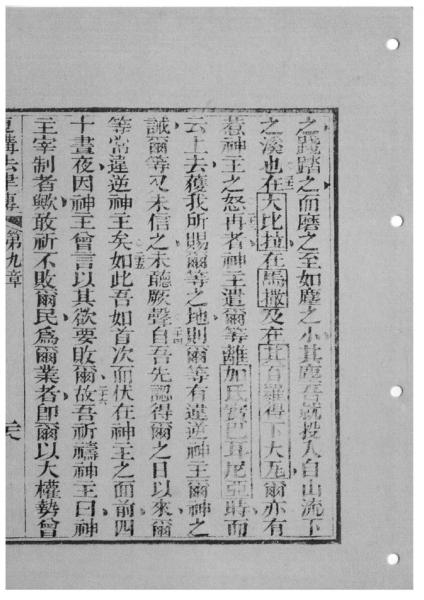 之踐踏之而磨之至如塵之小其塵吾就投入自山流下
之溪也在大比拉在馬撒及在其百羅得下大瓦爾亦有
惹神王之怒再者神王遣爾等離加氏 巴耳尼亞時而
云上去獲我所賜爾等之地則爾等有違逆神王爾神之
誡爾等又未信之未聽厥聲自吾先認得爾之日以來爾
等常違逆神王矣如此吾如首次而伏在神王之面前四
十晝夜因神王曾言以其欲要敗爾故吾祈禱神王曰神
主宰制者歟敢祈不敗爾民為爾業者即爾以大權勢曾
復講法律傳 第九章